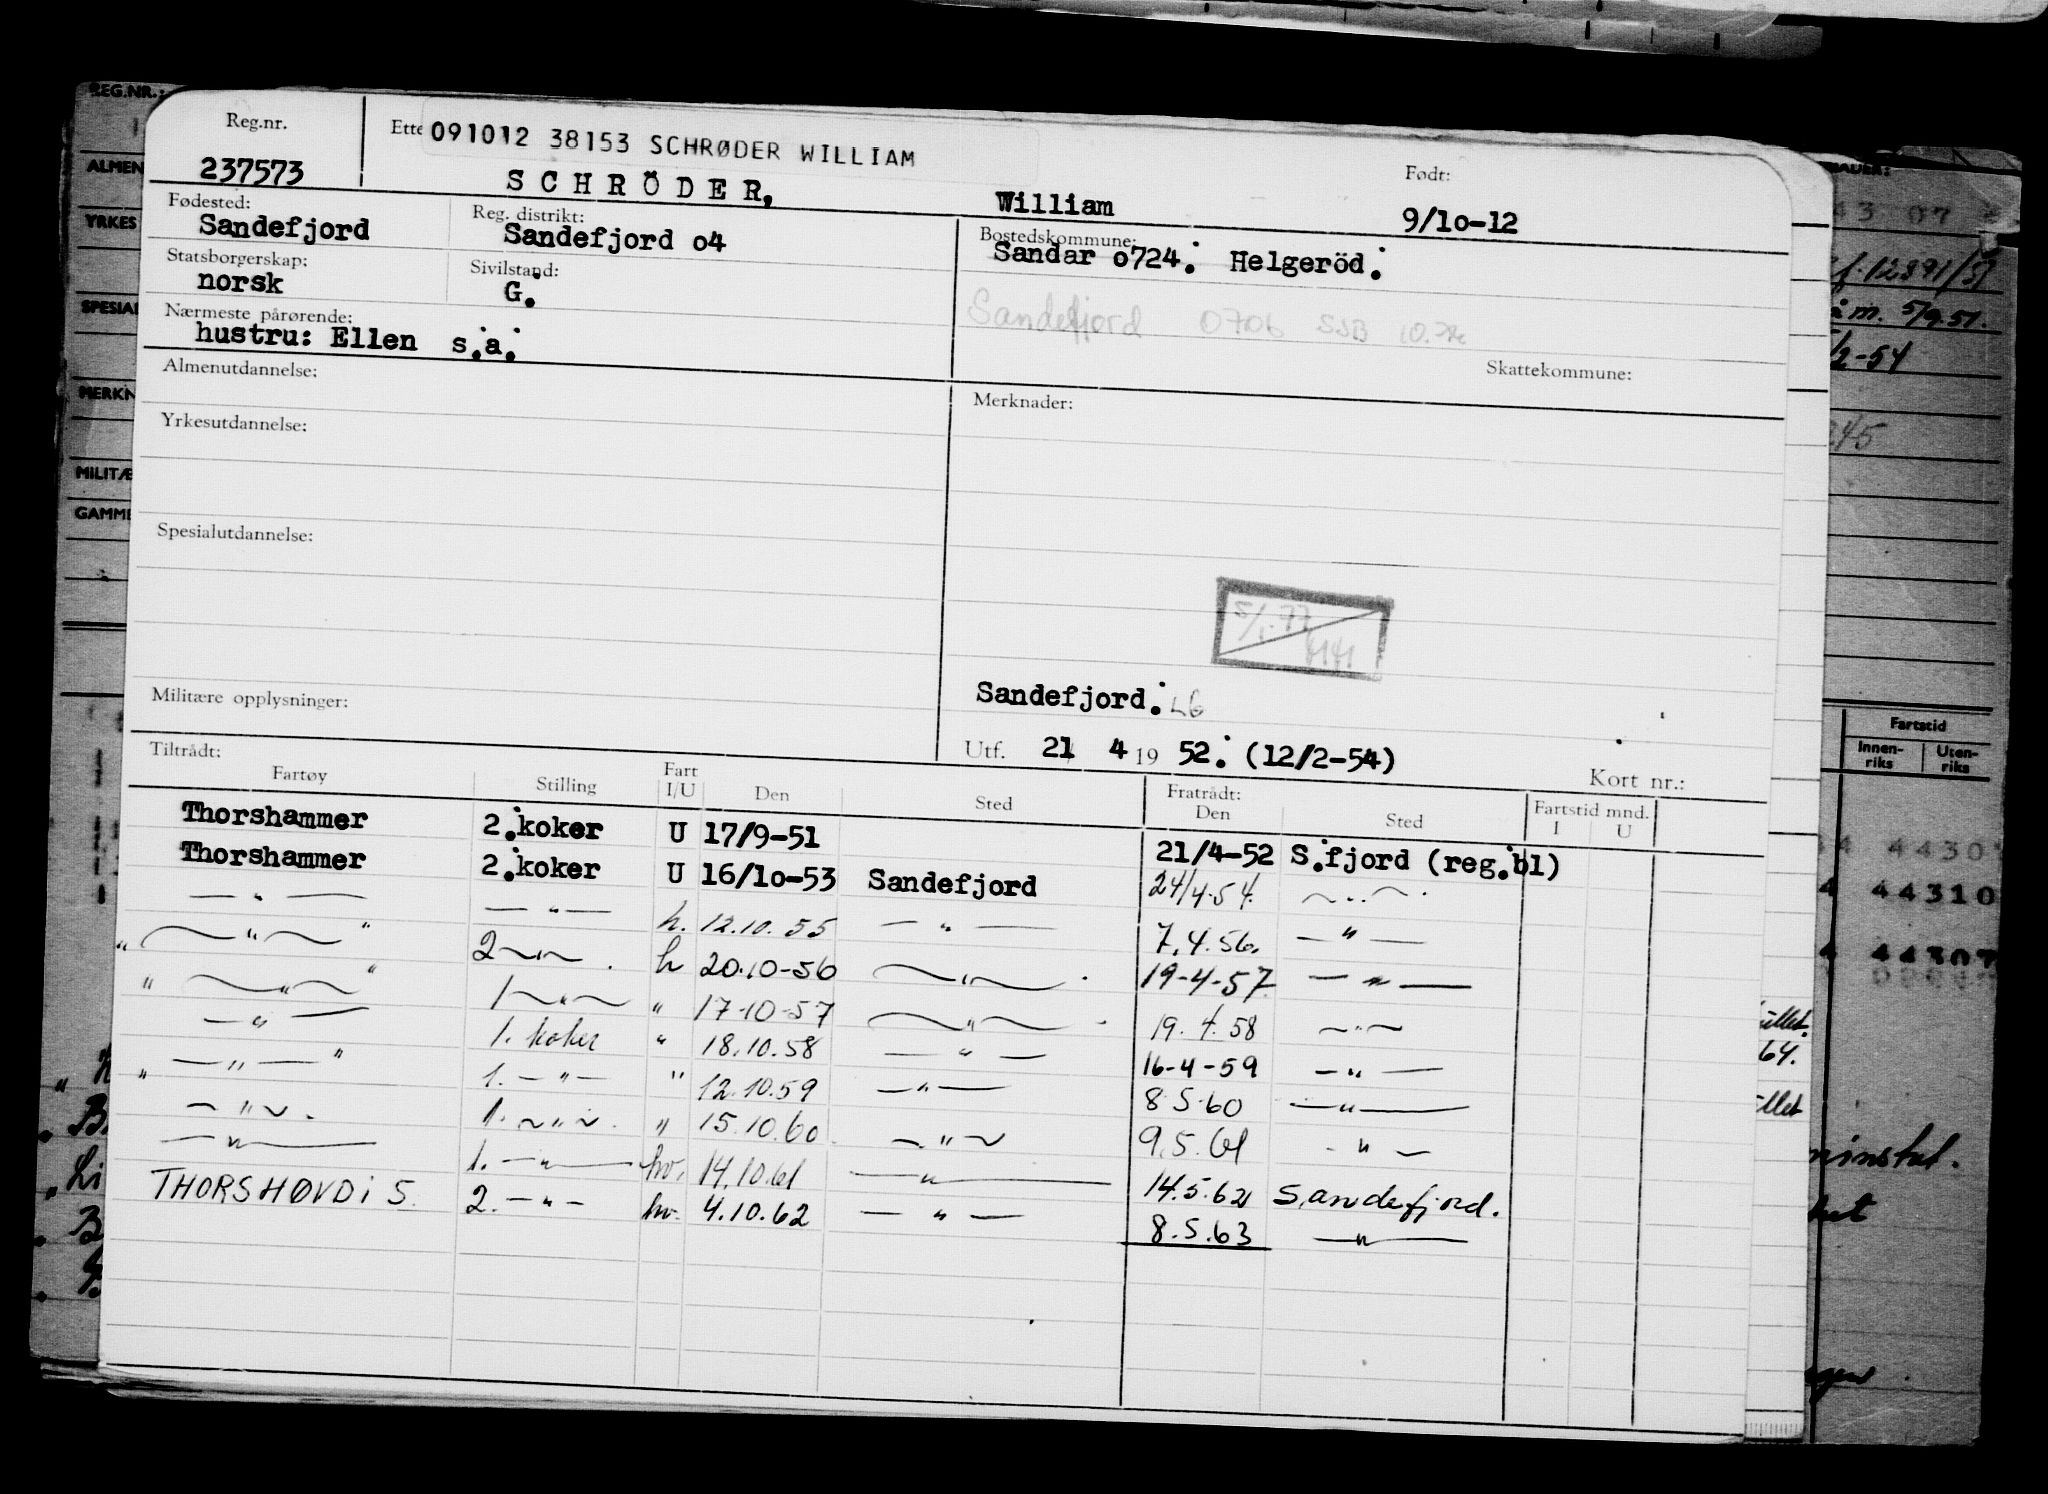 REG.NR.:
Reg.nr.
Ette 091012 38153 SCHRØDER WILLIAM
Født:
237573
SCHRÖDER, William 9/10-12
Fødested:
Sandefjord
Reg. distrikt:
Sandefjord o4
Bostedskommune:
Sandar o724. Helgeröd.
Statsborgerskap:
norsk
Sivilstand:
G.
Sandefjord 0706 SSB
Nærmeste pårørende:
hustru: Ellen s.a.
Skattekommune:
Almenutdannelse:
Merknader:
Yrkesutdannelse:
Spesialutdannelse:
5/1.77
Militære opplysninger:
Sandefjord.
Utf. 21 4 19 52. (12/2-54)
Kort nr.:
Tiltrådt: Fratrådt: Fartstid mnd.
Fartøy Stilling Fart I/U Den Sted Den Sted I U
Thorshammer 2.koker U 17/9-51 21/4-52 S.fjord (reg.bl)
Thorshammer 2.koker U 16/10-53 Sandefjord 24/4-54. — " —
— " — — " — h. 12.10.55 — " — 7.4.56. — " —
" — " — " 2 — " — h 20.10-56 — " — 19-4-57 — " —
" — " — " 1 — " — " 17-10-57 — " — 19.4.58 — " —
— " — 1. koker " 18.10.58 — " — 16-4-59 — " —
— " — " 1. — " — " 12.10.59 — " — 8.5.60 — " —
" — " — 1. — " — " 15.10.60 — " — 9.5.61 — " —
— " — 1. — " — hv. 14.10.61 — " — 14.5.62 Sandefjord.
THORSHØVDI 5. 2. — " — hv. 4.10.62 — " — 8.5.63 — " —
ALMEN
YRKES
SPESIAL
MERKN
MILITÆ
GAMME
12391/51
5/9.51.
/2-54
245
Fartstid
Innen-riks Uten-riks
4430
44310
44307
64.